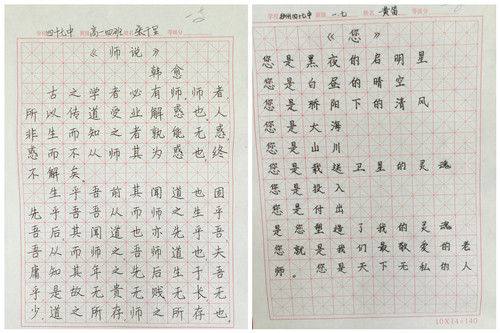 四十九中 高一四班 张千里
《师说》
韩愈
古之学者必有师.师者,
所以传道受业解惑也.人
非生而知之者孰能无惑.
惑而不从师其为惑也终
不解矣.
生乎吾前其闻道也固
先乎吾吾从而师之生乎
吾后,其闻道也亦先乎吾
吾从而师之吾师道也夫
庸知其年之先后生于吾
乎是故无贵无贱无长无
少.道之所存.师之所存也
四十九中 一.七 黄蕾
《您》
您是黑夜的启明星
您是白昼的晴空
您是骄阳下的清风
您是大海
您是山川
您是我
卫星的灵魂
您是投入
您是付出
是您塑造了我的灵魂
您就是我们最敬爱的老
师。您是天下无私的人
10X14=140